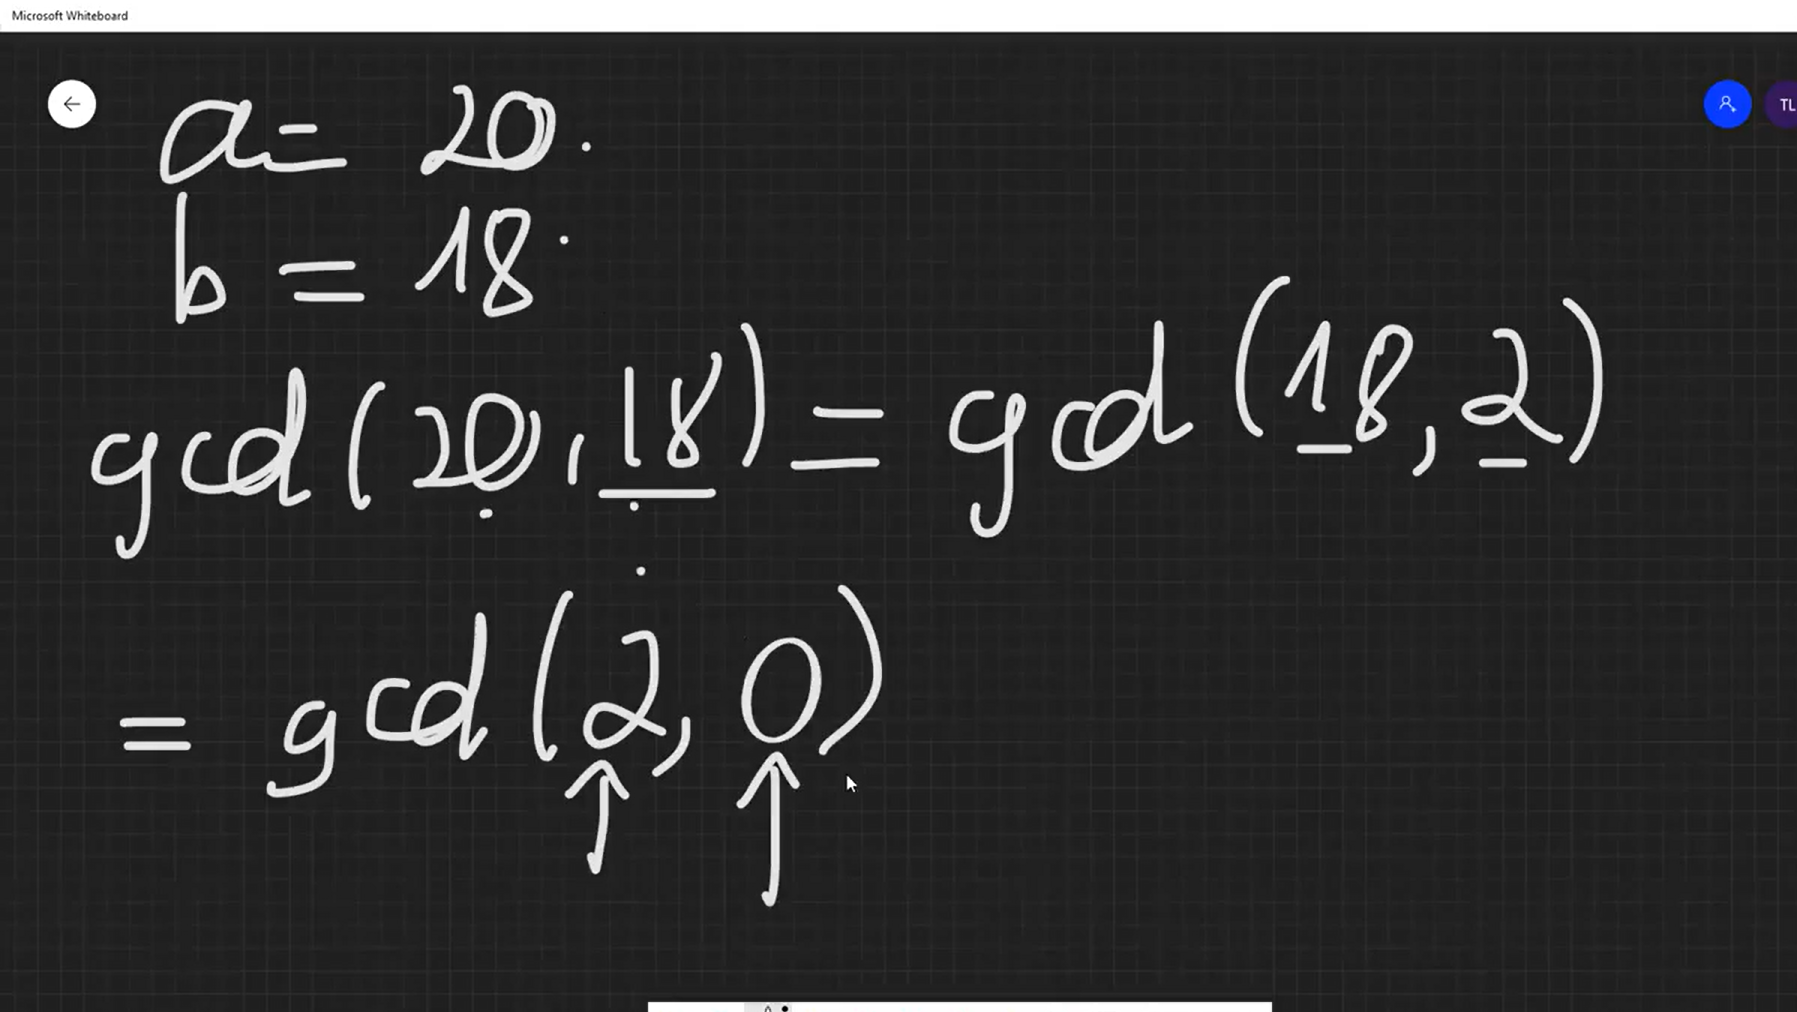 Microsoft Whiteboard
TL
a = 20.
b = 18.
gcd(20, 18) = gcd(18, 2)
= gcd(2, 0)